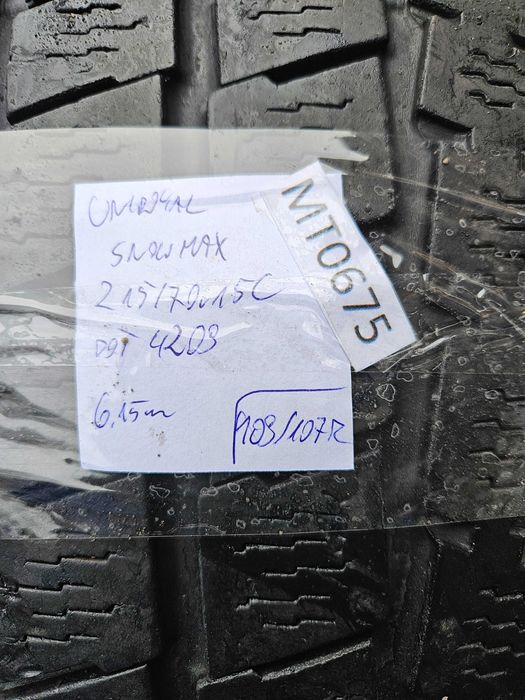 UNIROYAL
SNOW MAX
215/70R15C
DOT 4209
6,15m
109/107R
MT0675